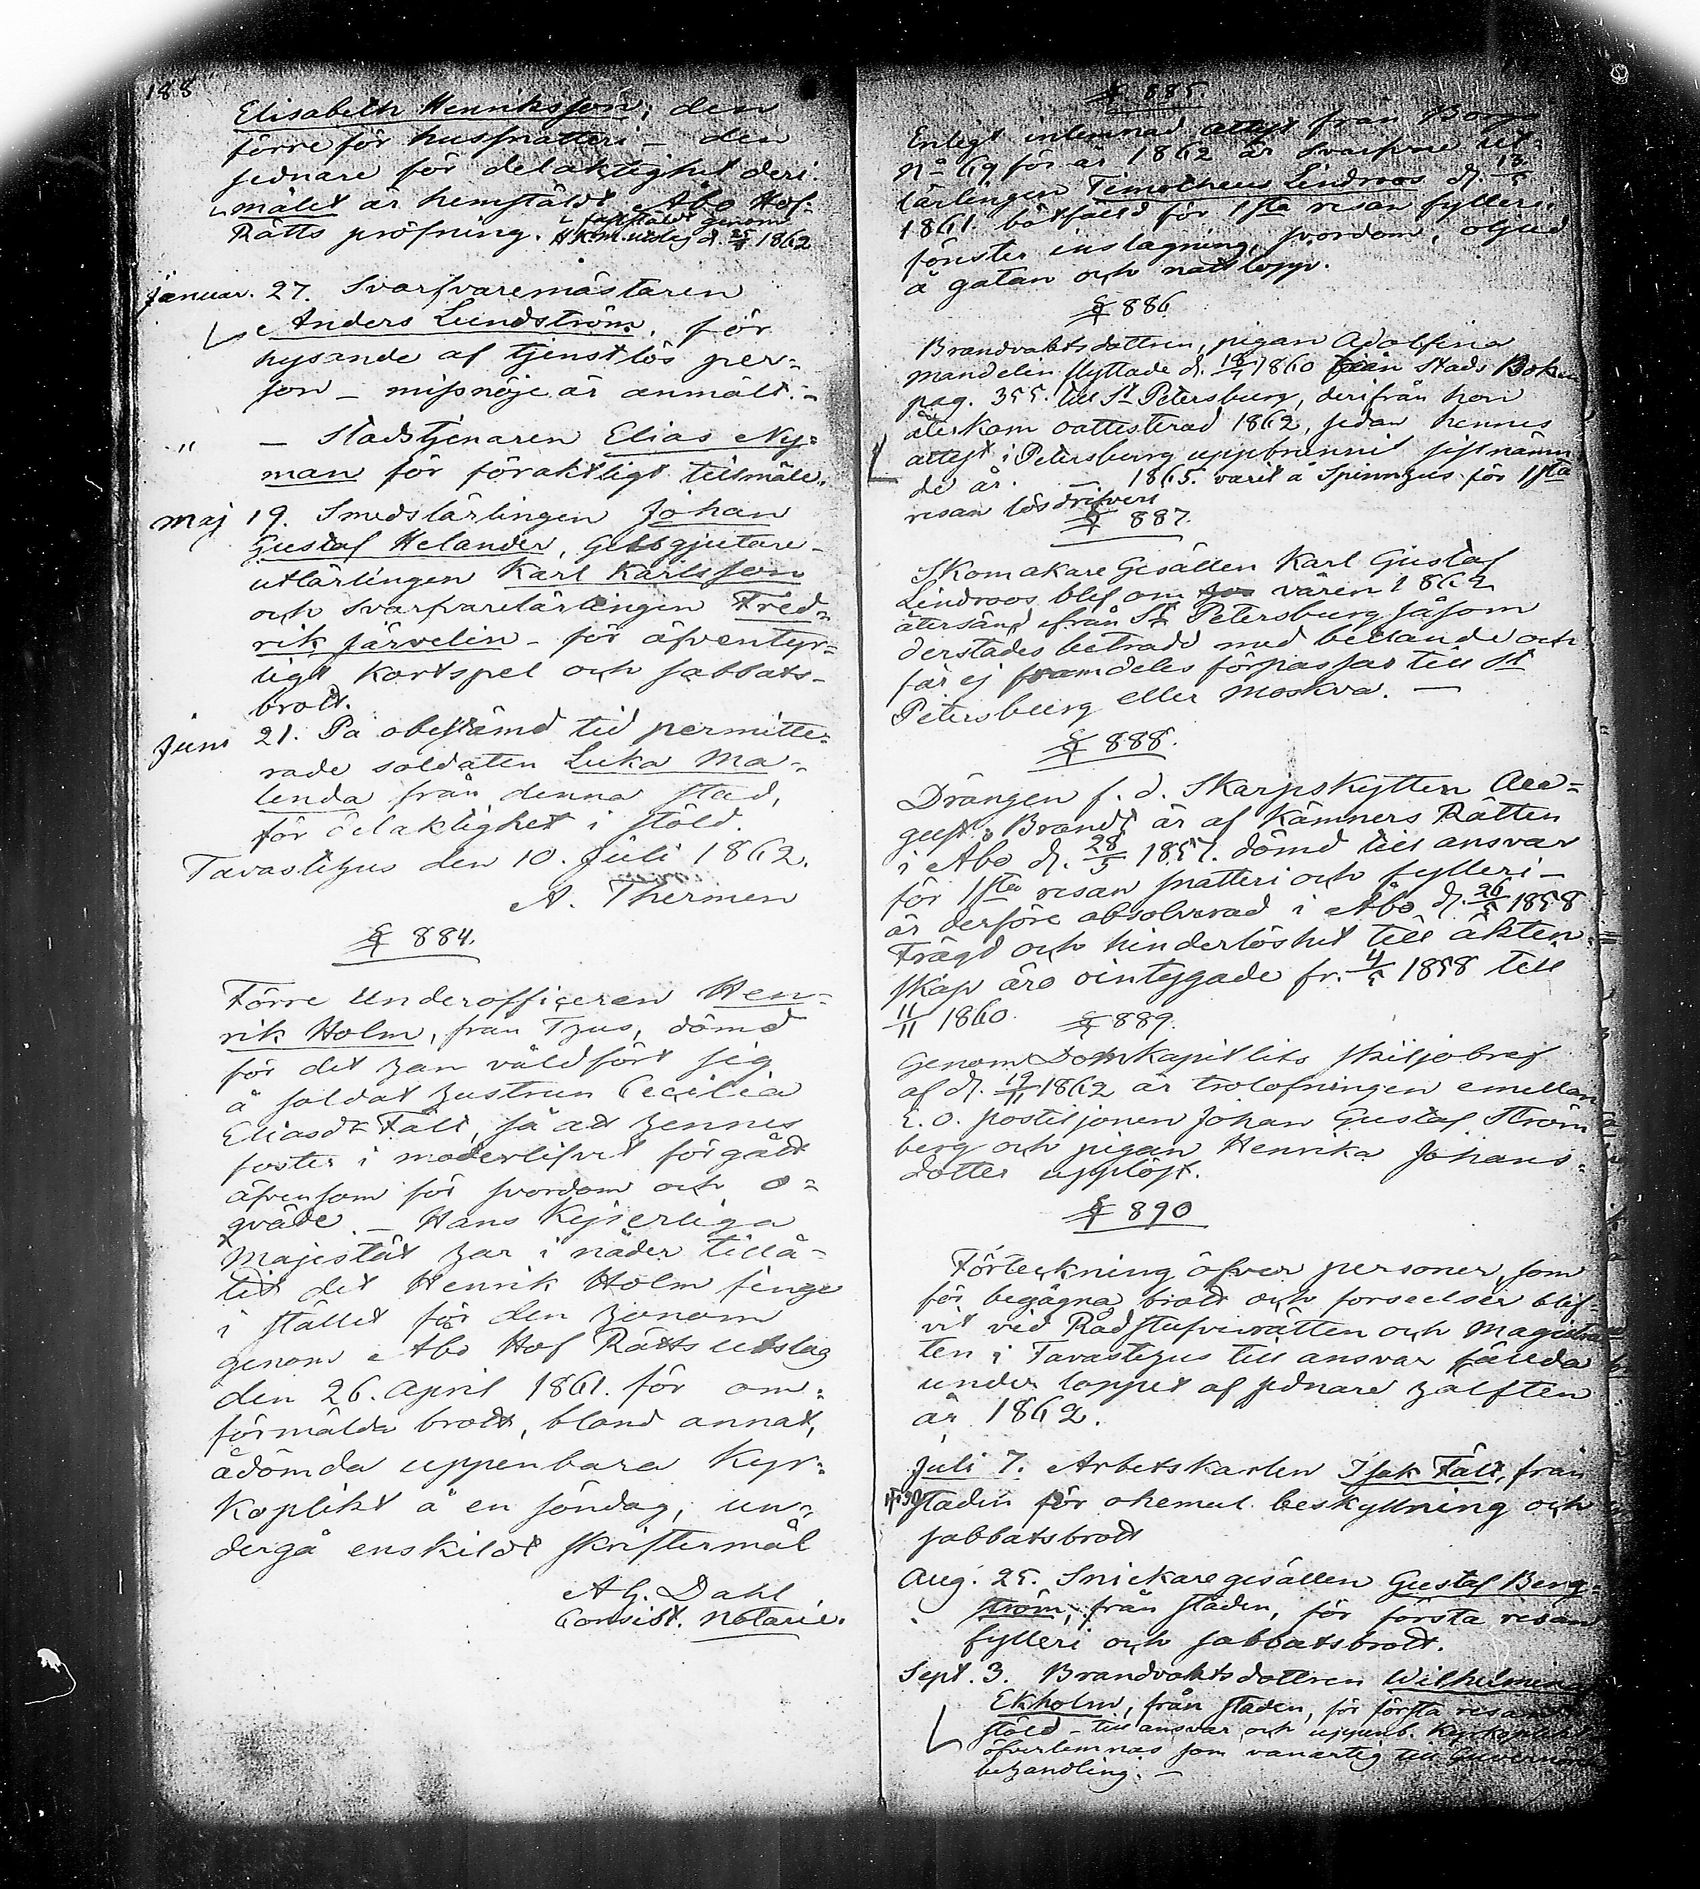 188
Elisabeth Henriksson; den
förre för hussnatteri – den
sednare för delaktighet deri.
målet är hemstäldt Åbo Hof-
fastställdt genom
Rätts pröfning. H.R:ns utslag d. 25/9 1862
Januar. 27. Svarfvaremästaren
Anders Lundström, för
hysande af tjenstlös per-
son – missnöje är anmält. –
" – Stadstjenaren Elias Ny-
man för föraktligt tillmäle.
Maj 19. Smedslärlingen Johan
Gustaf Helander, Gelbgjutare-
utlärlingen Karl Karlsson
och svarfvarelärlingen Fred-
rik Järvelin – för äfventyr-
ligt kortspel och sabbats-
brott.
Juni 21. På obestämd tid permitte-
rade soldaten Luka Ma-
lenda från denna stad,
för delaktighet i stöld.
Tavastehus den 10. Juli 1862.
A. Thermen
§ 884.
Förre Underofficeren Hen-
rik Holm, från Thus, dömd
för det han våldfört sig
å soldat hustrun Cecilia
Eliasdr Fält, så att hennes
foster i moderlifvet förgått
äfvensom för svordom och o-
qväde. – Hans Kejserliga
Majestät har i nåder tillå-
tit det Henrik Holm finge
i stället för den honom
genom Åbo Hof Rätts utslag
den 26. April 1861. för om-
förmälda brott, bland annat,
ådömda uppenbara Kyr-
koplikt å en söndag, un-
dergå enskildt skriftermål
A G. Dahl
Consist. Notarie.
§ 885
Enligt inlemnad attest från Borgå
N:o 69 för år 1862 är svarfvare ut-
lärlingen Timotheus Lindroos d. 13/5
1861. bötfälld för 1sta resan fylleri,
fönster inslagning, svordom, oljud
å gatan och nattlopp.
§ 886
Brandvaktsdottren, pigan Adolfina
Mandelin flyttade d. 18/7 1860 från Stads Boken
pag. 355. till St Petersburg, derifrån hon
återkom oattesterad 1862, sedan hennes
attest i Petersburg uppbrunnit sistnämn
de år. – 1865. varit å Spinnhus för 1sta
resan lösdrifveri
§ 887.
Skomakare Gesällen Karl Gustaf
Lindroos blef om våren 1862
återsänd ifrån St Petersburg såsom
derstädes beträdd med bettlande och
får ej framdeles förpassas till St
Petersburg eller Moskva. –
§ 888.
Drängen f. d. Skarpskytten Au-
gust Brandt är af Kämners Rätten
i Åbo d. 28/5 1857. dömd till ansvar
för 1sta resan snatteri och fylleri –
är derföre absolverad i Åbo d. 26/5 1858
Frägd och hinderlöshet till äkten-
skap äro ointygade fr. 4/5 1858 till
11/11 1860.
§ 889.
Genom Domkapitlets skiljobref
af d. 19/11 1862 är trolofningen emellan
E. O. postiljonen Johan Gustaf Ström
berg och pigan Henrika Johans-
dotter upplöst.
§ 890
Förteckning öfver personer, som
för begågna brott och forseelser blif-
vit vid Rådstufvurätten och Magistra
ten i Tavastehus till ansvar fällda
under loppet af sednare hälften
år 1862.
Juli 7. Arbetskarlen Isak Fält, från
staden för okemul. beskyllning och
sabbatsbrott
Aug. 25. Snickaregesällen Gustaf Berg-
ström, från staden, för första resan
fylleri och sabbatsbrott.
Sept. 3. Brandvaktsdottren Wilhelmina
Ekholm, från staden, för första resan
stöld – till ansvar och uppenb. Kyrkoplikt
öfverlemnas som vanartig till Guvernörens
behandling. –